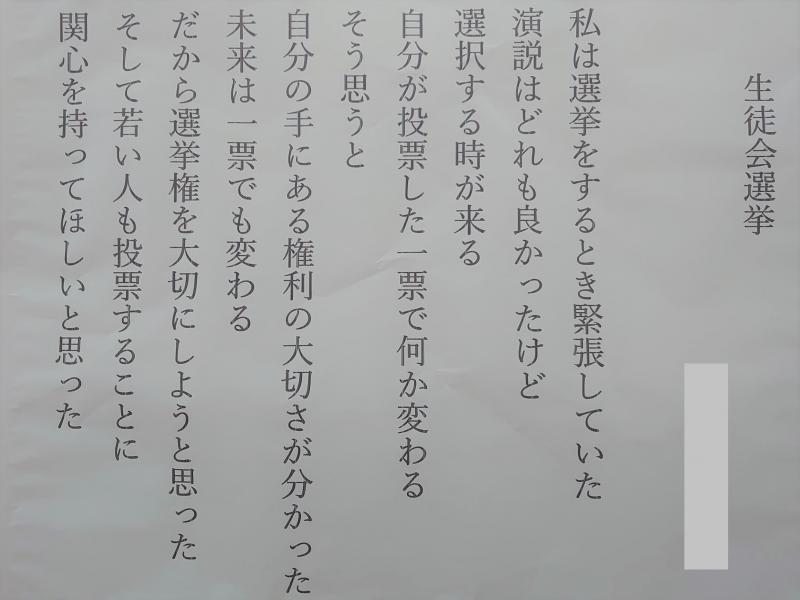 生徒会選挙
私は選挙をするとき緊張していた
演説はどれも良かったけど
選択する時が来る
自分が投票した一票で何か変わる
そう思うと
自分の手にある権利の大切さが分かった
未来は一票でも変わる
だから選挙権を大切にしようと思った
そして若い人も投票することに
関心を持ってほしいと思った